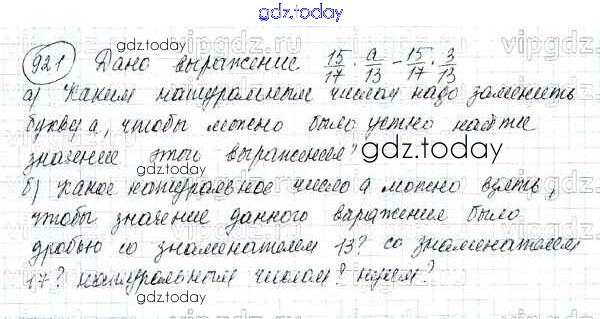 gdz.today
921 Дано выражение 15/17 · a/13 − 15/17 · 3/13
а) Каким натуральным числом надо заменить
букву а, чтобы можно было устно найти
значение этого выражения?
gdz.today
б) какое натуральное число а можно взять,
чтобы значение данного выражения было
дробью со знаменателем 13? со знаменателем
17? натуральным числом? нулем?
gdz.today